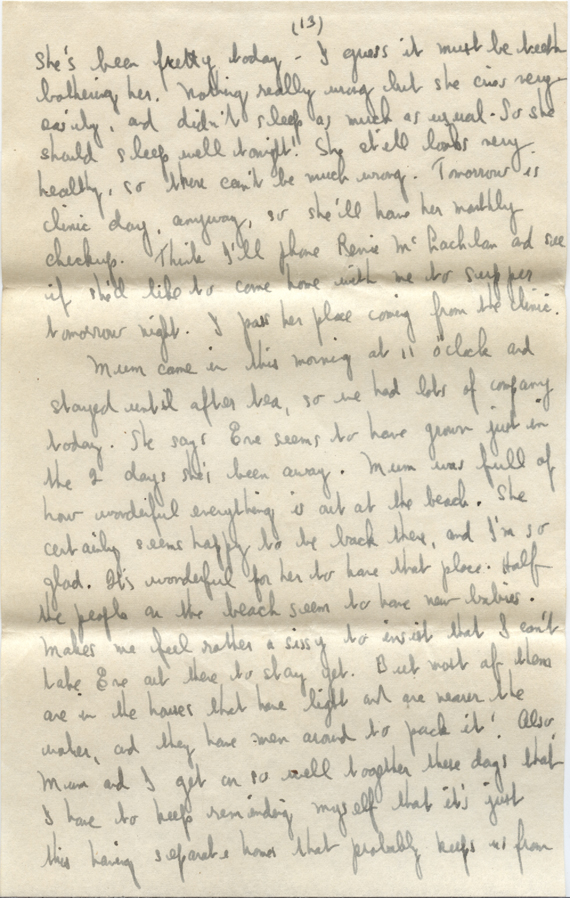 (13)
She's been fretty today - I guess it must be teeth
bothering her. Nothing really wrong but she cries very
easily, and didn't sleep as much as usual. So she
should sleep well tonight! She still looks very
healthy, so there can't be much wrong. Tomorrow is
clinic day, anyway, so she'll have her monthly
checkup. Think I'll phone Renie McLachlan and see
if she'd like to come home with me to supper
tomorrow night. I pass her place coming from the clinic.
Mum came in this morning at 11 o'clock and
stayed until after tea, so we had lots of company
today. She says Eve seems to have grown just in
the 2 days she's been away. Mum was full of
how wonderful everything is out at the beach. She
certainly seems happy to be back there, and I'm so
glad. It's wonderful for her to have that place. Half
the people on the beach seem to have new babies.
Makes me feel rather a sissy to insist that I can't
take Eve out there to stay yet. But most of them
are in the houses that have light and are nearer the
water, and they have men around to pack it! Also,
Mum and I get on so well together these days that
I have to keep reminding myself that it's just
this having separate homes that probably keeps us from